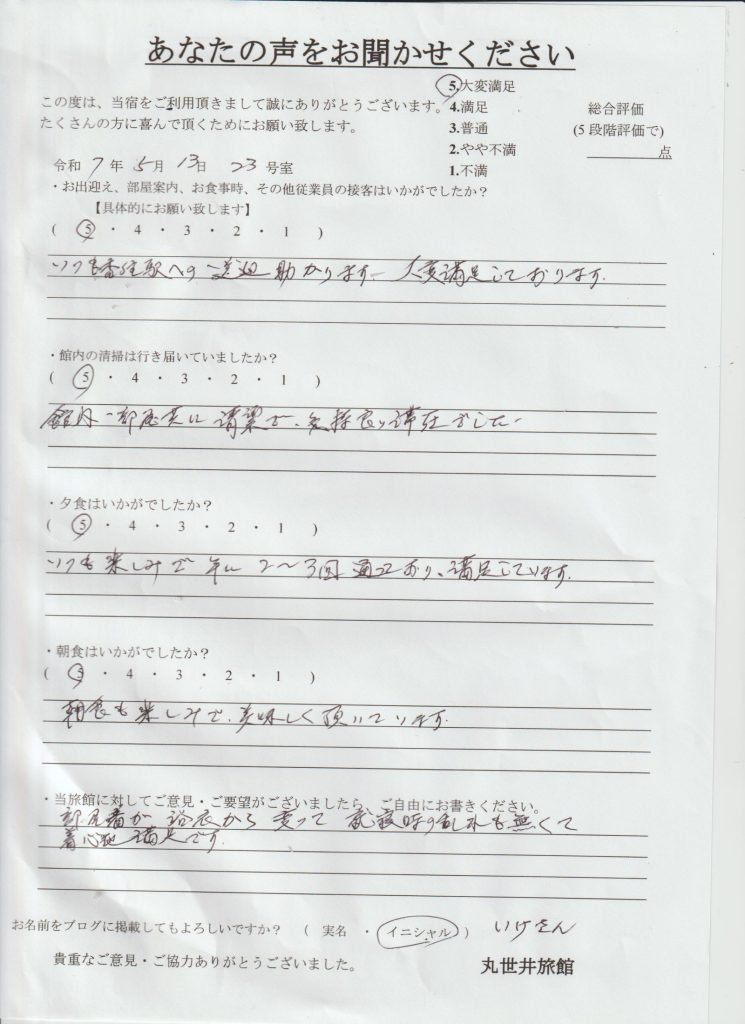 あなたの声をお聞かせください
この度は、当宿をご利用頂きまして誠にありがとうございます。
たくさんの方に喜んで頂くためにお願い致します。
5.大変満足
4.満足
3.普通
2.やや不満
1.不満
総合評価
(5段階評価で)
点
令和 7 年 5 月 13 日 23 号室
・お出迎え、部屋案内、お食事時、その他従業員の接客はいかがでしたか？
【具体的にお願い致します】
( 5 ・ 4 ・ 3 ・ 2 ・ 1 )
いつも香住駅への送迎助かります 大変満足しております.
・館内の清掃は行き届いていましたか？
( 5 ・ 4 ・ 3 ・ 2 ・ 1 )
館内・部屋共に清潔で、気持良い滞在でした.
・夕食はいかがでしたか？
( 5 ・ 4 ・ 3 ・ 2 ・ 1 )
いつも楽しみで年に2〜3回通っており、満足しています.
・朝食はいかがでしたか？
( 5 ・ 4 ・ 3 ・ 2 ・ 1 )
朝食も楽しみで、美味しく頂いています.
・当旅館に対してご意見・ご要望がございましたら、ご自由にお書きください。
部屋着が浴衣から変って就寝時の乱れも無くて
着心地満足です.
お名前をブログに掲載してもよろしいですか？ ( 実名 ・ イニシャル ) いけさん
貴重なご意見・ご協力ありがとうございました。
丸世井旅館